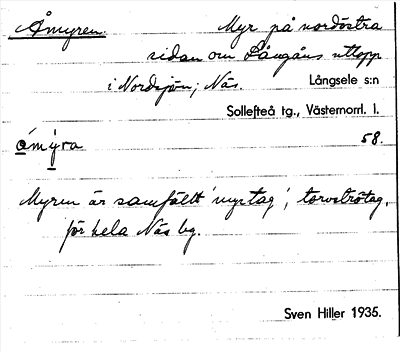 Åmyren. Myr på nordöstra
sidan om Långåns utlopp
i Nordsjön; Näs. Långsele s:n
Sollefteå tg., Västernorrl. l.
åmýra 58.
Myren är samfällt 'myrtag', torvströtag,
för hela Näs by.
Sven Hiller 1935.